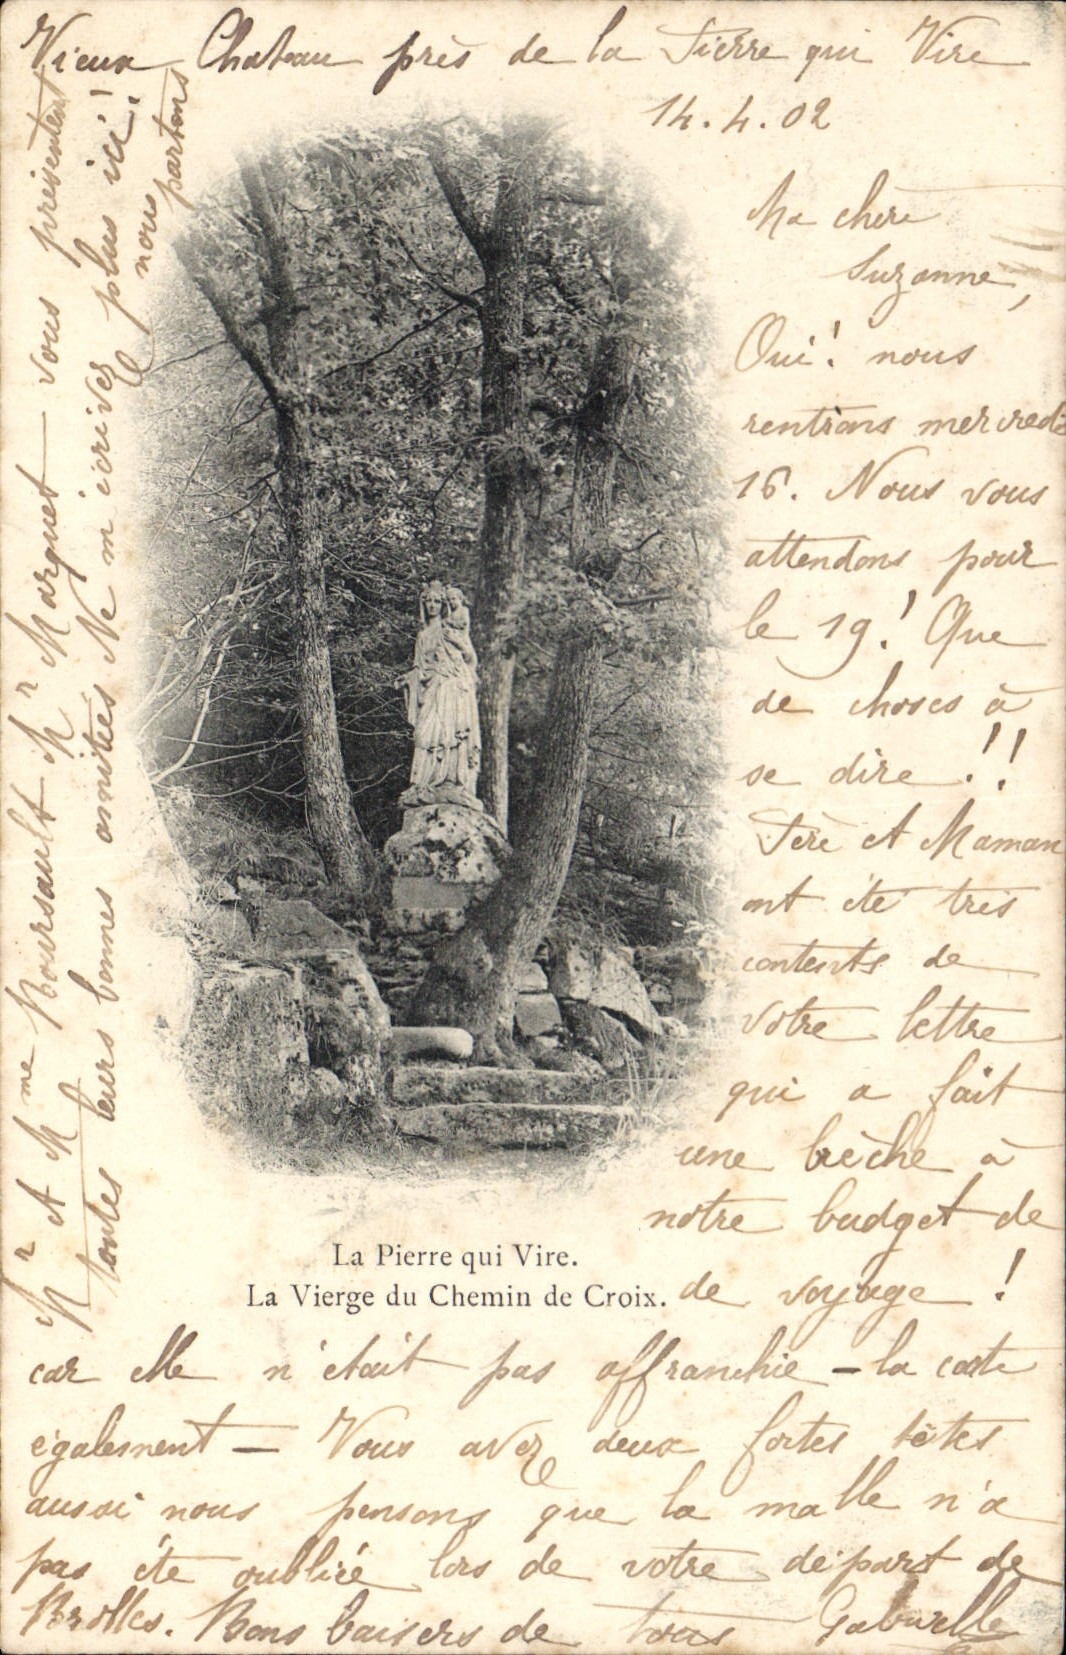 Vieux Chateau près de la Pierre qui Vire
14.4.02
Ma chère
Suzanne,
Oui! nous
rentrons mercredi
16. Nous vous
attendons pour
le 19! Que
de choses à
se dire!!
Père et Maman
ont été très
contents de
votre lettre
qui a fait
une brèche à
notre budget de
de voyage!
La Pierre qui Vire.
La Vierge du Chemin de Croix.
car elle n'était pas affranchie – la carte
également – Vous avez deux fortes têtes
aussi nous pensons que la malle n'a
pas été oubliée lors de votre départ de
Brolles. Bons baisers de tous Gabrielle
Mr et Mme Boursault Mr Marquet – vous présentent
toutes leurs bonnes amitiés Ne m'écrivez plus ici!
nous partons